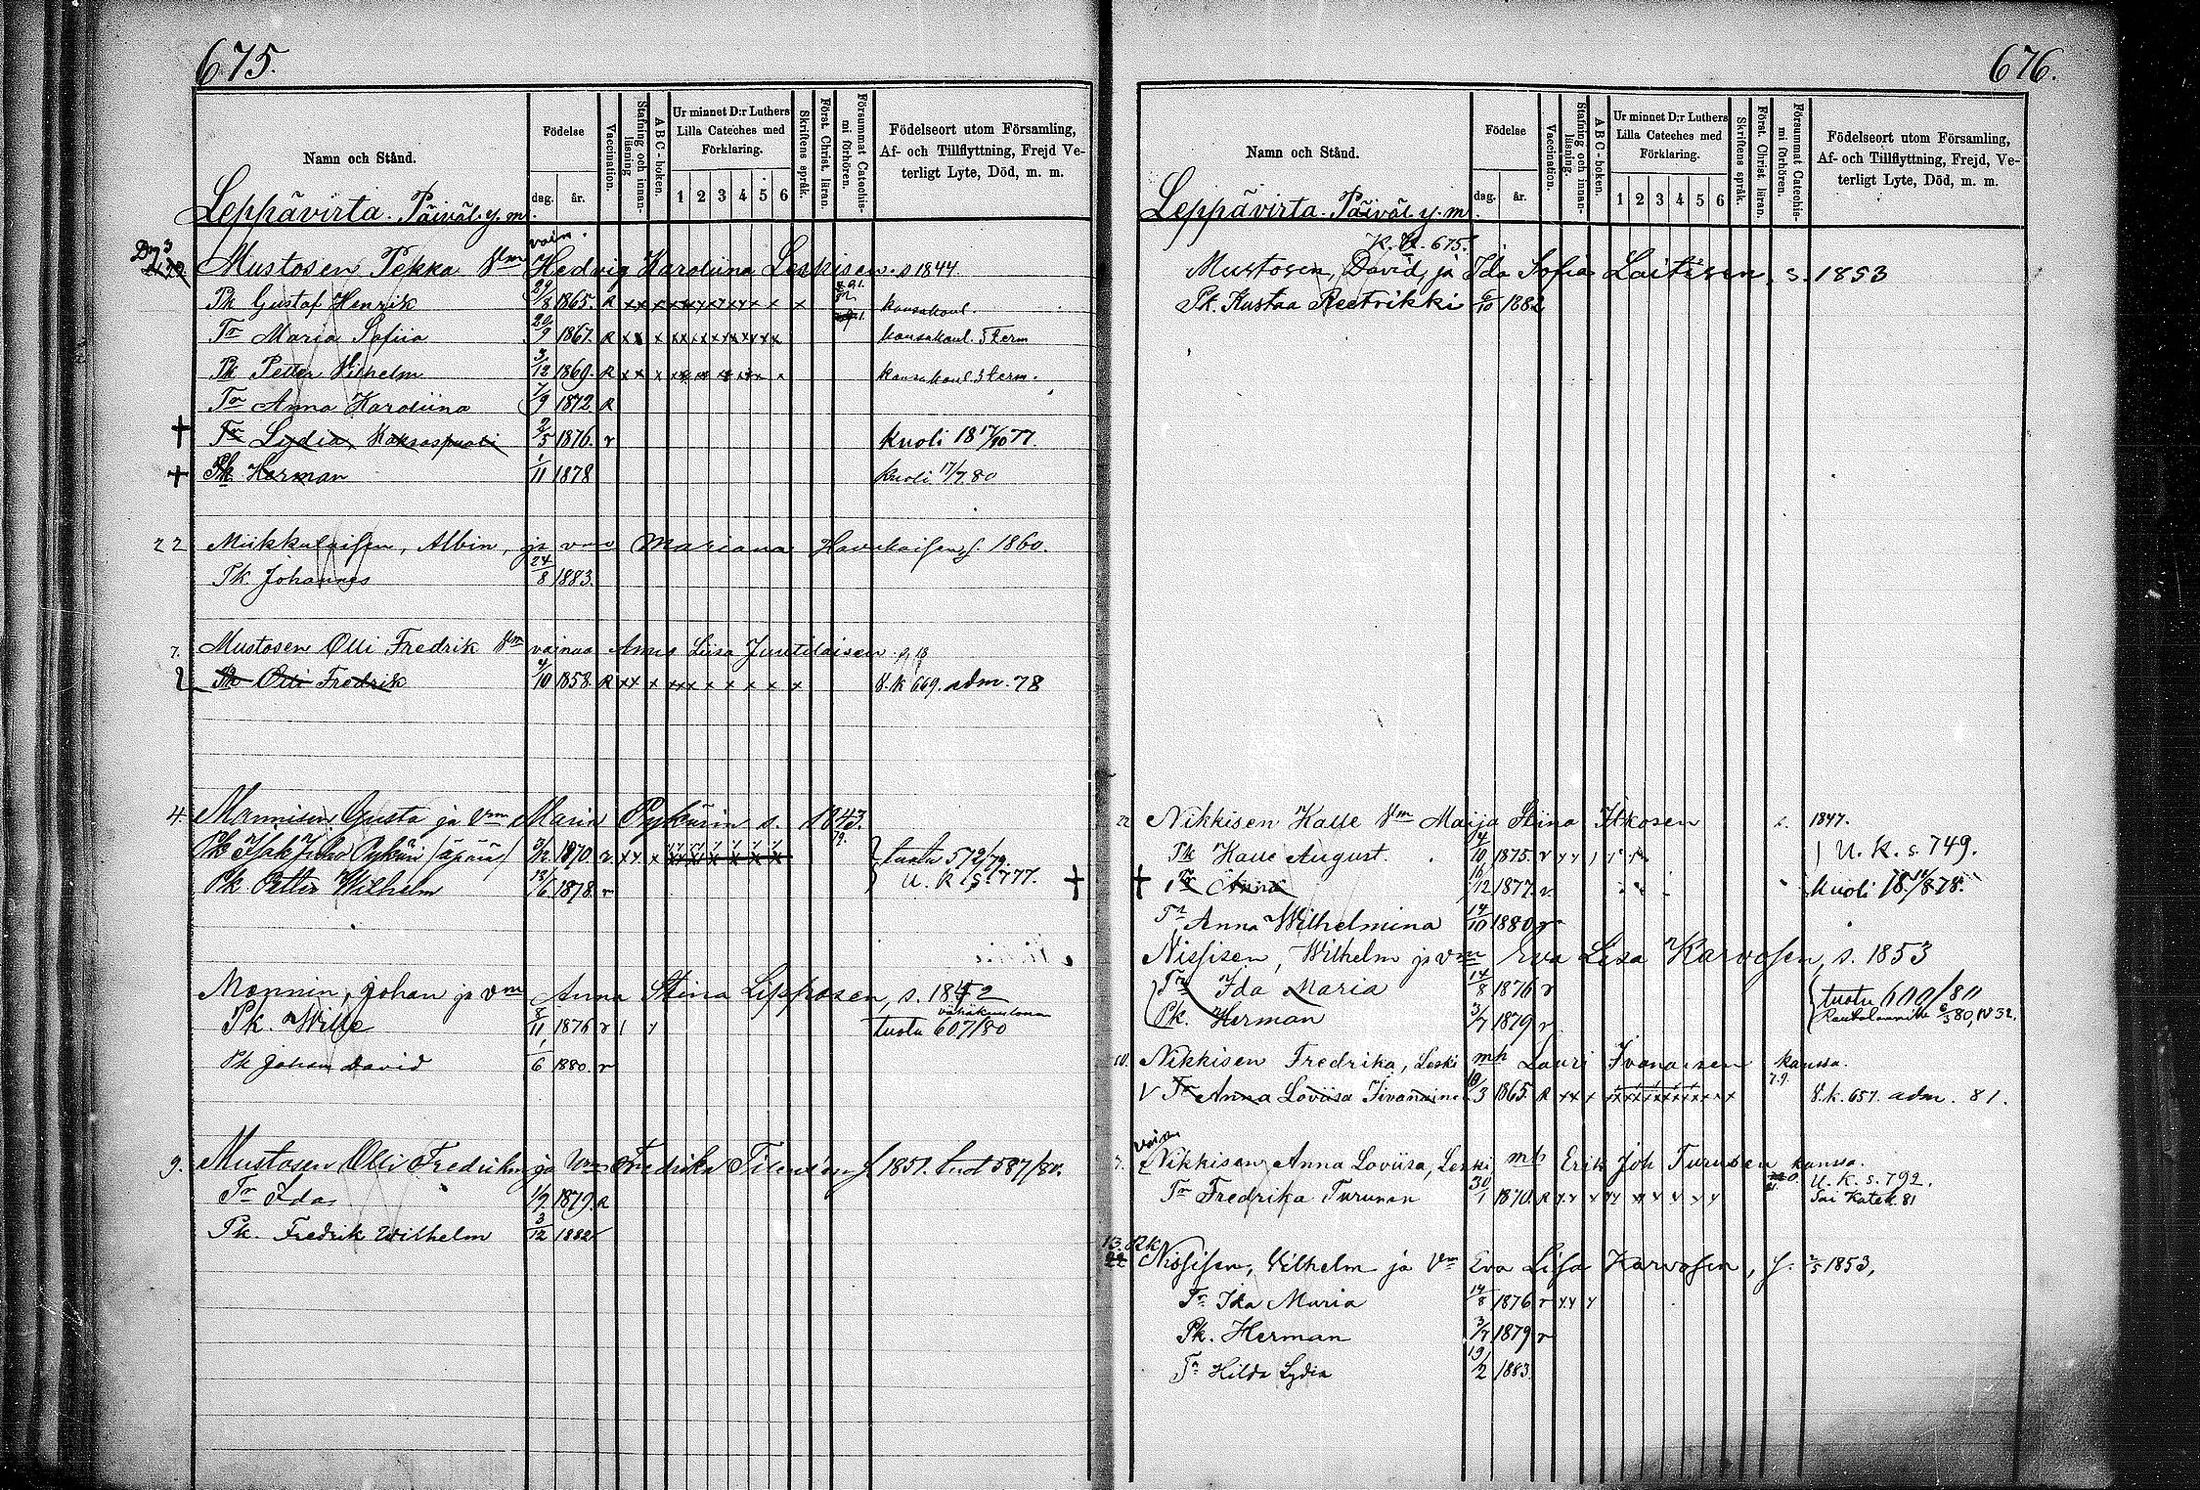 675.
Namn och Stånd.
Födelse
dag.
år.
Vaccination.
Stafning och innan-läsning
ABC-boken.
Ur minnet D:r Luthers Lilla Cateches med Förklaring.
1 2 3 4 5 6
Skriftens språk.
Först. Christ. läran.
Försummat Catechismi förhören.
Födelseort utom Församling, Af- och Tillflyttning, Frejd Veterligt Lyte, Död, m. m.
Leppävirta. Päiväl. y. m.
vain.
Mustosen Pekka Vm Hedvig Karoliina Leskisen. s 1844
Pk Gustaf Henrik 29/8 1865. R kansakoul.
Tr Maria Sofiia 20/9 1867. R kansakoul. 5 term
Pk Petter Vilhelm 3/12 1869. R kansakoul 3 term.
Tr Anna Karoliina 7/9 1872. R
Tr Lydia, Kaksospuoli 2/5 1876. r kuoli 18 17/10 77.
Pk Herman 1/11 1878 kuoli 17/7 80
22 Miikkulaisen, Albin, ja vmo Mariana s. 1860.
Pk Johannes 24/8 1883.
7. Mustosen Olli Fredrik Vm vainaa Anna Liisa Juutilaisen
Pk Olli Fredrik 4/10 1858. R S.k 669. adm. 78
4. Mannisen Gusta ja Vm Maria Pykärin s. 1843.
79.
Pk Isak Juho Pykäri (äpärä) 1870. r tuotu 572/79.
Pk. Petter Wilhelm 13/6 1878. r U. K. S. 777.
Monnin, Johan ja Vm Anna Stina Lipposen, s. 1842
Pk. Wille 8/11 1876 r tuotu 607/80
Pk Johan David 1/6 1880. r
9. Mustosen Olli Fredrikin ja Vm Fredrika 1851. tuot 587/80.
Tr Ida 1/9 1879. R
Pk. Fredrik Wilhelm 3/12 1882
676.
Namn och Stånd.
Födelse
dag.
år.
Vaccination.
Stafning och innan-läsning.
ABC-boken.
Ur minnet D:r Luthers Lilla Cateches med Förklaring.
1 2 3 4 5 6
Skriftens språk.
Först. Christ. läran.
Försummat Catechismi förhören.
Födelseort utom Församling, Af- och Tillflyttning, Frejd, Veterligt Lyte, Död, m. m.
Leppävirta. Päiväl. y. m.
R. K. 675.
Mustosen, David, ja Ida Sofia Laitisen, s. 1853
Pk. Kustaa Reetrikki 6/10 1882
22 Nikkisen Kalle Vm Maija Stiina Itkosen s. 1847.
Pk Kalle August. 4/10 1875. r U. K. s. 749.
Tr Anna 16/12 1877. r kuoli 18 14/8 78.
Tr Anna Wilhelmina 14/10 1880 r
Nissisen, Wilhelm ja vm Eva Lisa Karvosen, s. 1853
Tr Ida Maria 14/8 1876 r tuotu 600/80
Pk. Herman 3/7 1879 r
10. Nikkisen Fredrika, Leski mh Lauri Iivanaisen kanssa.
V Tr Anna Loviisa Iivanaine 10/3 1865. R S.k. 657. adm. 81.
vain.
7. Nikkisen Anna Loviisa, Leski mh Erik Joh Turusen kanssa.
U. K. s. 792.
Tr Fredrika Turunen 30/1 1870. R Sai Katek. 81
13. RK
22 Nissisen, Vilhelm ja Vm Eva Lisa Karvosen, s. 2/5 1853,
Tr Ida Maria 14/8 1876 r
Pk. Herman 3/7 1879 r
Tr Hilda Lydia 19/2 1883